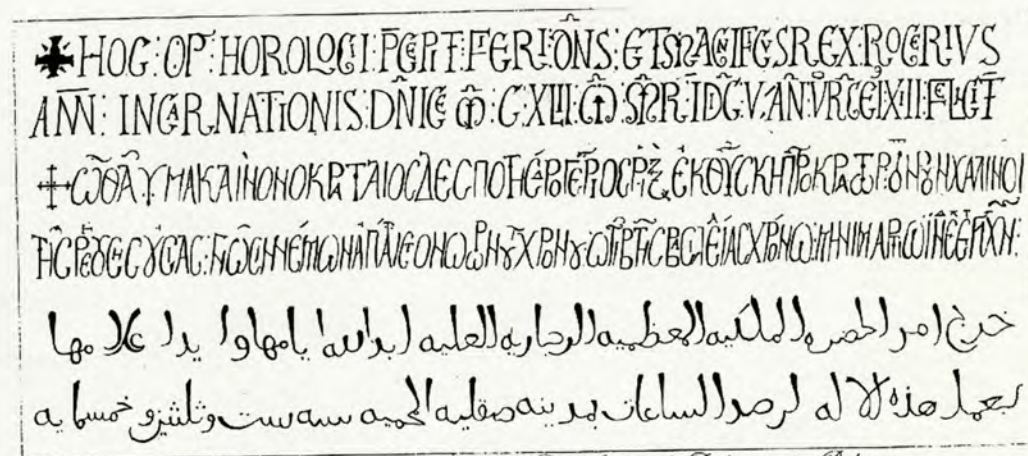 ✠ HOC : OP' : HOROLOGI : PCEPIT : FIERI : DNS : ET MAGNIFICUS REX : ROGERIVS
ANN : INCARNATIONIS : DNICE M : C : XLII : M MAR : IDC V : AN V R CEI XIII : FELICIT
ὦ θαυμα καινον ο κραταιος δεσποτης ρογεριος ρηξ εκ θυ σκηπτροκρατωρ τον ρουν χαλινοι
της ρεουσης ουσιας γνωσιν νεμων απταιστον ωρων του χρονου τω ιβ της βασιλειας χρονω μηνι μαρτιω ιν ε ετ ςχν :
خرج امر الحضره الملكيه المعظميه الرجاريه العليه ابد الله ايامها وايد اعلامها
بعمل هذه الاله لرصد الساعات بمدينه صقليه المحميه سنه ست وثلثين وخمسمايه